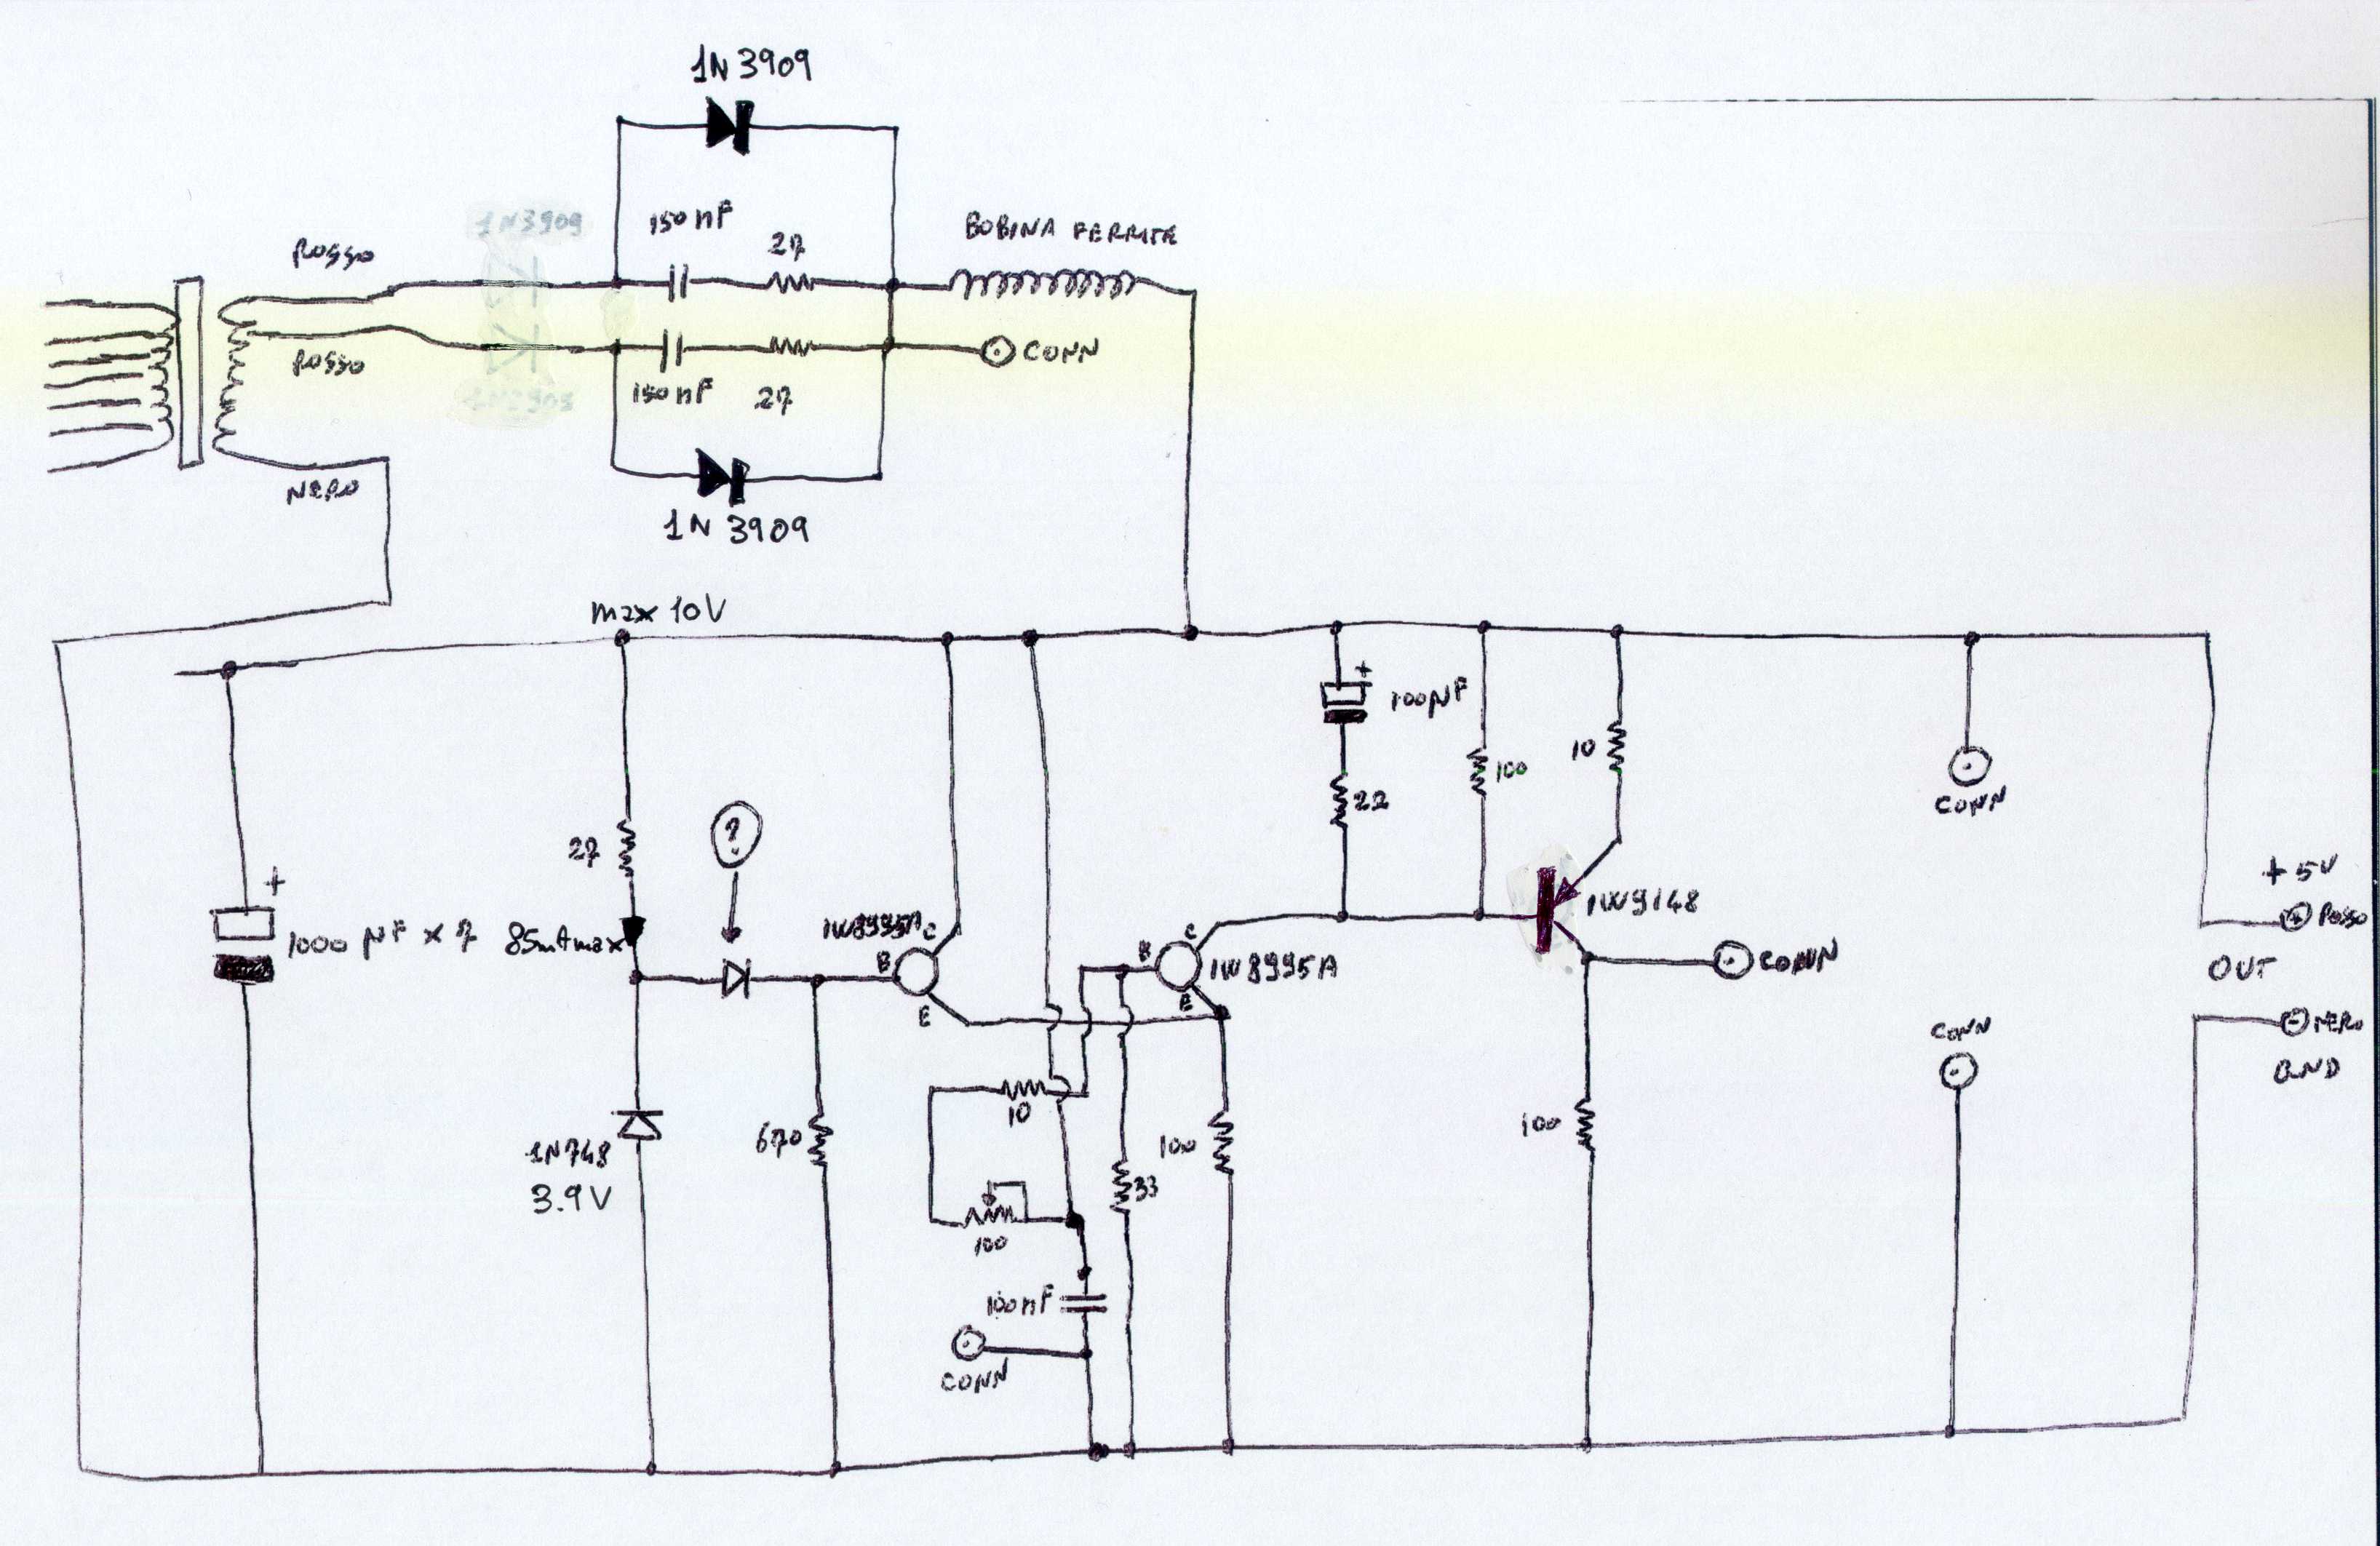 1N 3909
1N3909
150 nF
27
BOBINA FERRITE
ROSSO
ROSSO
CONN
150 nF
27
NERO
1N 3909
max 10V
+
100µF
100
10
22
CONN
27
?
+
1000 µF x 7
85mAmax
1W8995A
C
B
E
C
B
E
1W8995A
1W9148
CONN
+ 5V
+ ROSSO
OUT
- NERO
GND
CONN
10
1N748
3.9V
670
100
33
100
100
100nF
CONN